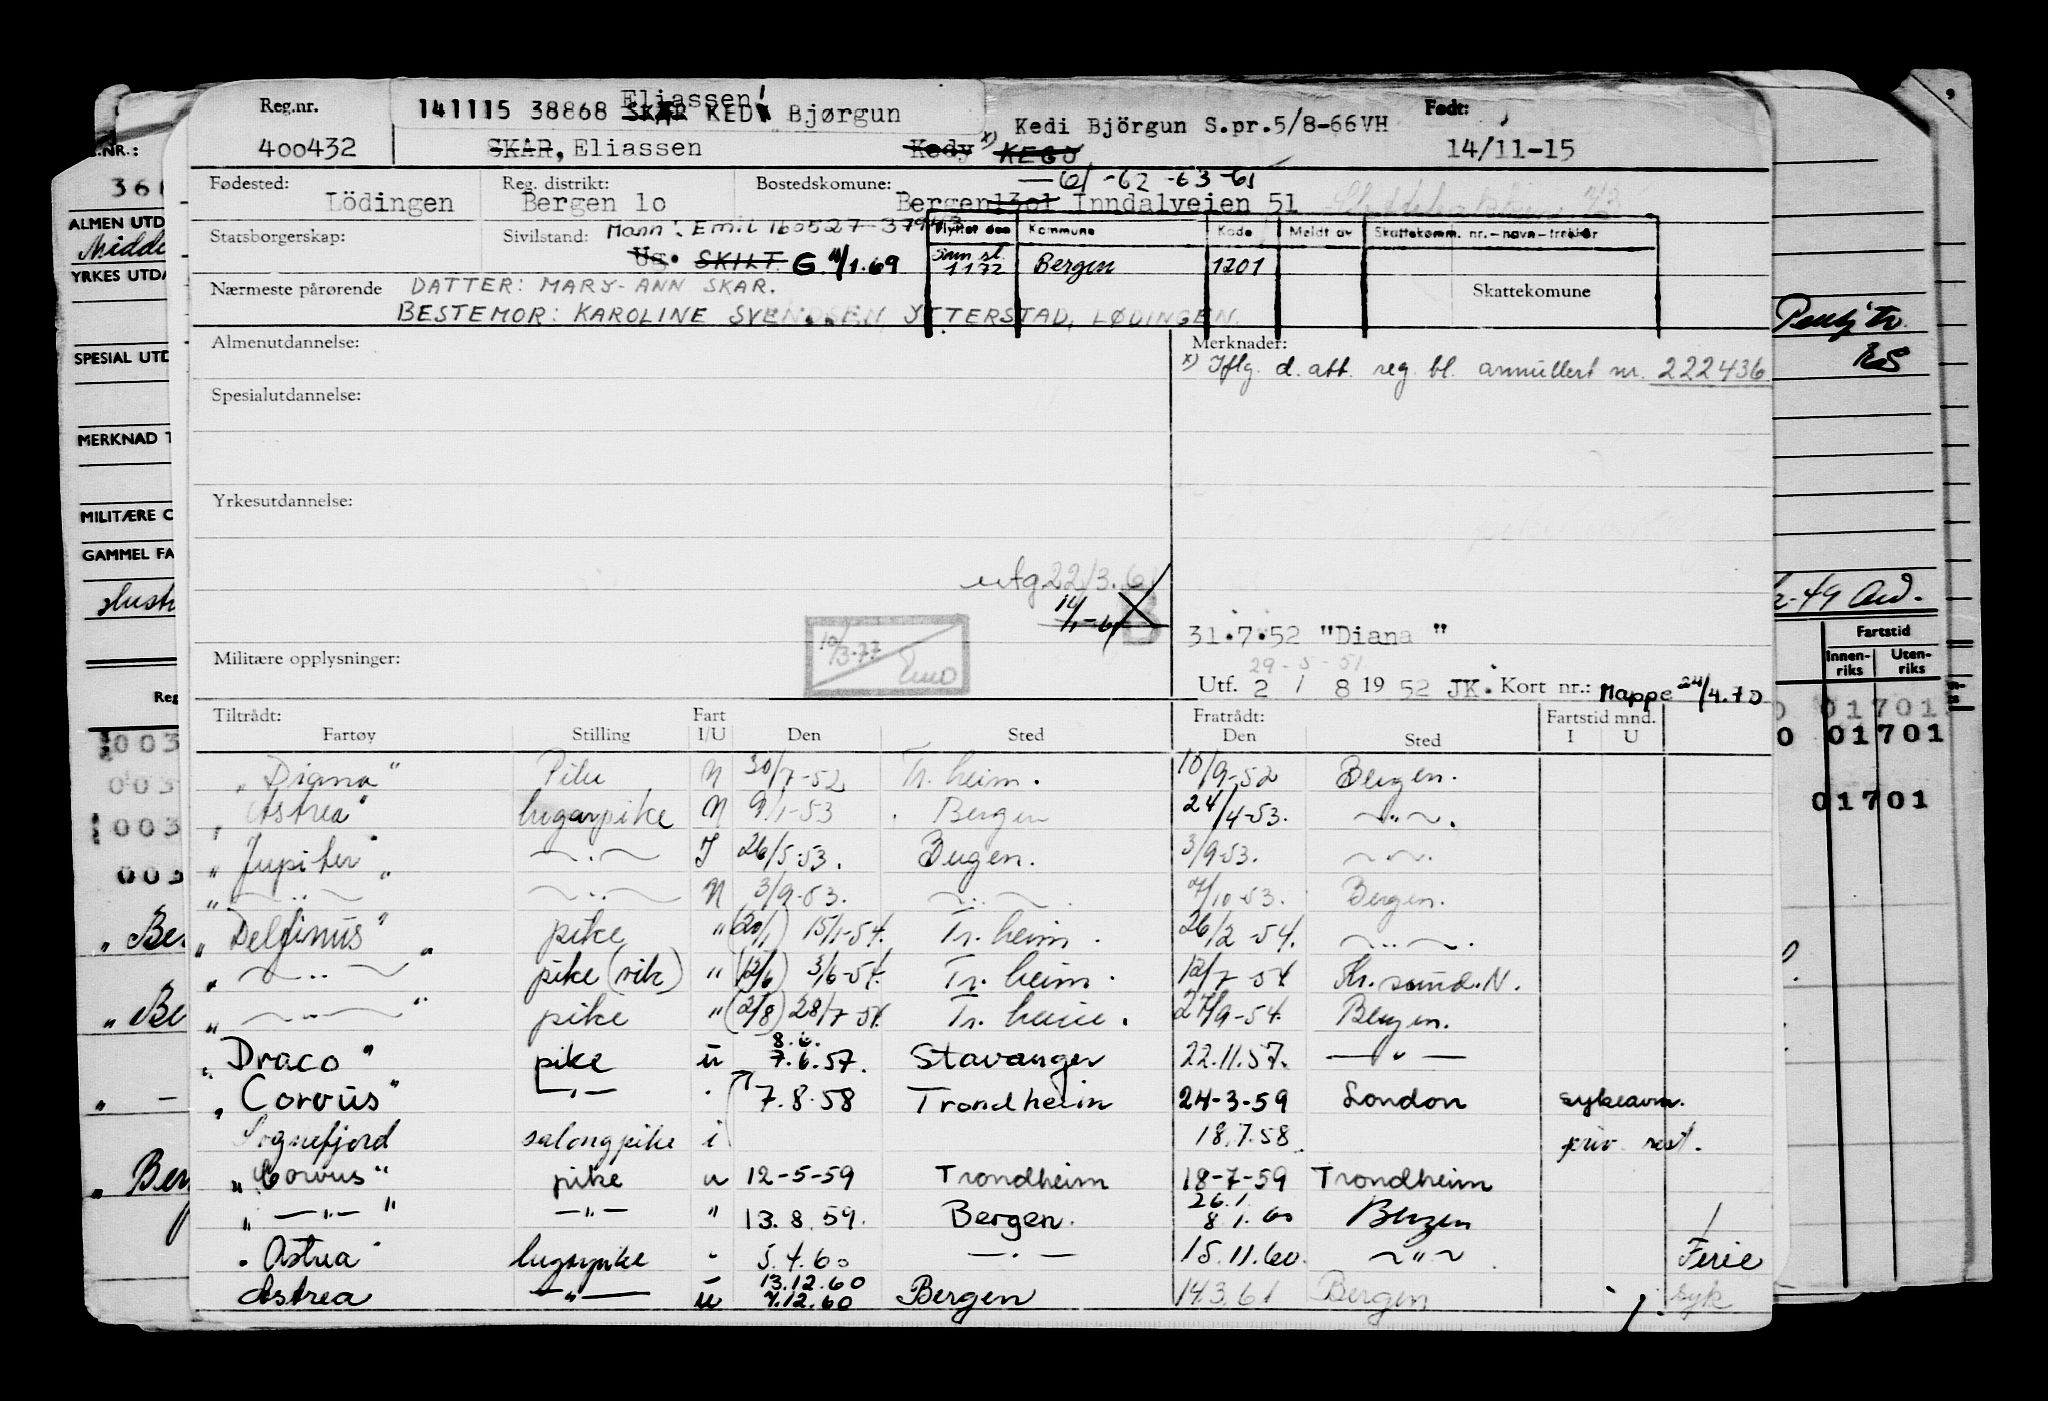 Reg.nr. 141115 38868 SKAR KEDY Eliassen! Bjørgun Kedi Björgun S.pr.5/8-66VH Født:
400432 SKAR, Eliassen Kedy x) KEGJ 14/11-15
Fødested: Reg. distrikt: Bostedskomune: — 61 -62 -63 -65
Lödingen Bergen 1o Bergen 1301 Inndalveien 51
Statsborgerskap: Sivilstand: Mann: Emil 160527 37943 Flyttet den Kommune Kode Meldt av Skattekomm. nr.-navn-trekkpr
Ug. SKILT G. 11/1.69 Bergen 1201
1172
Nærmeste pårørende DATTER: MARY-ANN SKAR. Skattekomune
BESTEMOR: KAROLINE SVENDSEN YTTERSTAD, LØDINGEN.
Almenutdannelse: Merknader:
x) Iflg. d. att. reg. bl. annullert nr. 222436
Spesialutdannelse:
Yrkesutdannelse:
utg 22/3.61
11/1-61 B
31.7.52 "Diana"
10/3-77
Militære opplysninger: 29-5-51
Utf. 2 / 8 1952 JK. Kort nr.: Mappe 24/4.70
Tiltrådt: Fart Fratrådt: Fartstid mnd.
Fartøy Stilling I/U Den Sted Den Sted I U
"Diana" Pike N 30/7-52 Tr.heim. 10/9-52 Bergen.
"Astrea" lugarpike N 9/1-53 Bergen 24/4-53. — " —.
"Jupiter" — " — I 26/5-53. Bergen. 3/9-53. — " —.
" — " — " — " — N 3/9-53. — " —. 7/10-53. Bergen.
"Delfinus" pike " (20/1) 15/1-54. Tr.heim. 26/2-54. — " —.
" — " — " pike (vik) " (12/6) 3/6-54. Tr.heim. 12/7-54 Kr.sund.N.
" — " — " pike " (2/8) 28/7-54. Tr.heim. 27/9-54. Bergen.
"Draco" pike u 8.6. 7.6.57. Stavanger 22.11.57. — " —
"Corvus" — " — " 7.8.58 Trondheim 24-3-59 London sykeavm.
Sognefjord salongpike i 18.7.58 priv. rest.
"Corvus" pike u 12-5-59 Trondheim 18-7-59 Trondheim
" — " — " — " — " 13.8.59. Bergen. 26.1. 8.1.60 Bergen
"Astrea" lugarpike " 5.4.60 — " — 15.11.60. — " — Ferie
Astrea — " — u 13.12.60 7.12.60 Bergen 14.3.61 Bergen syk
.NR.:
361
ALMEN UTD
Midde
YRKES UTDA
SPESIAL UTD
MERKNAD T
MILITÆRE O
GAMMEL FA
Hust
Reg
003
003
003
003
"Ber
"Be
" —
"Ber
9
-49
Fartstid
Innen-riks Uten-riks
0 01701
0 01701
01701